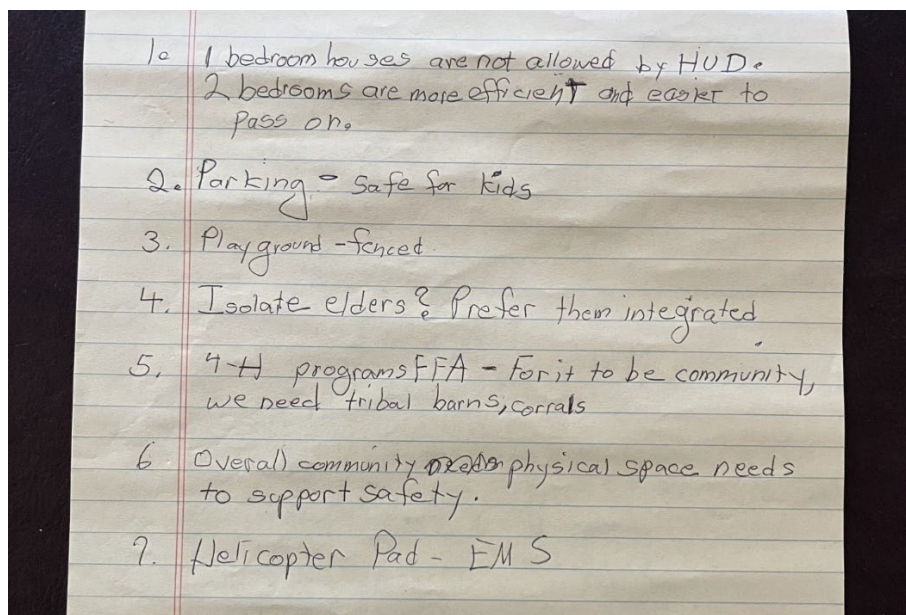 1. 1 bedroom houses are not allowed by HUD.
2 bedrooms are more efficient and easier to
pass on.
2. Parking - Safe for kids
3. Playground - fenced.
4. Isolate elders? Prefer them integrated
5. 4-H programs FFA - For it to be community,
we need tribal barns, corrals
6 Overall community physical space needs
to support safety.
7. Helicopter Pad - EMS